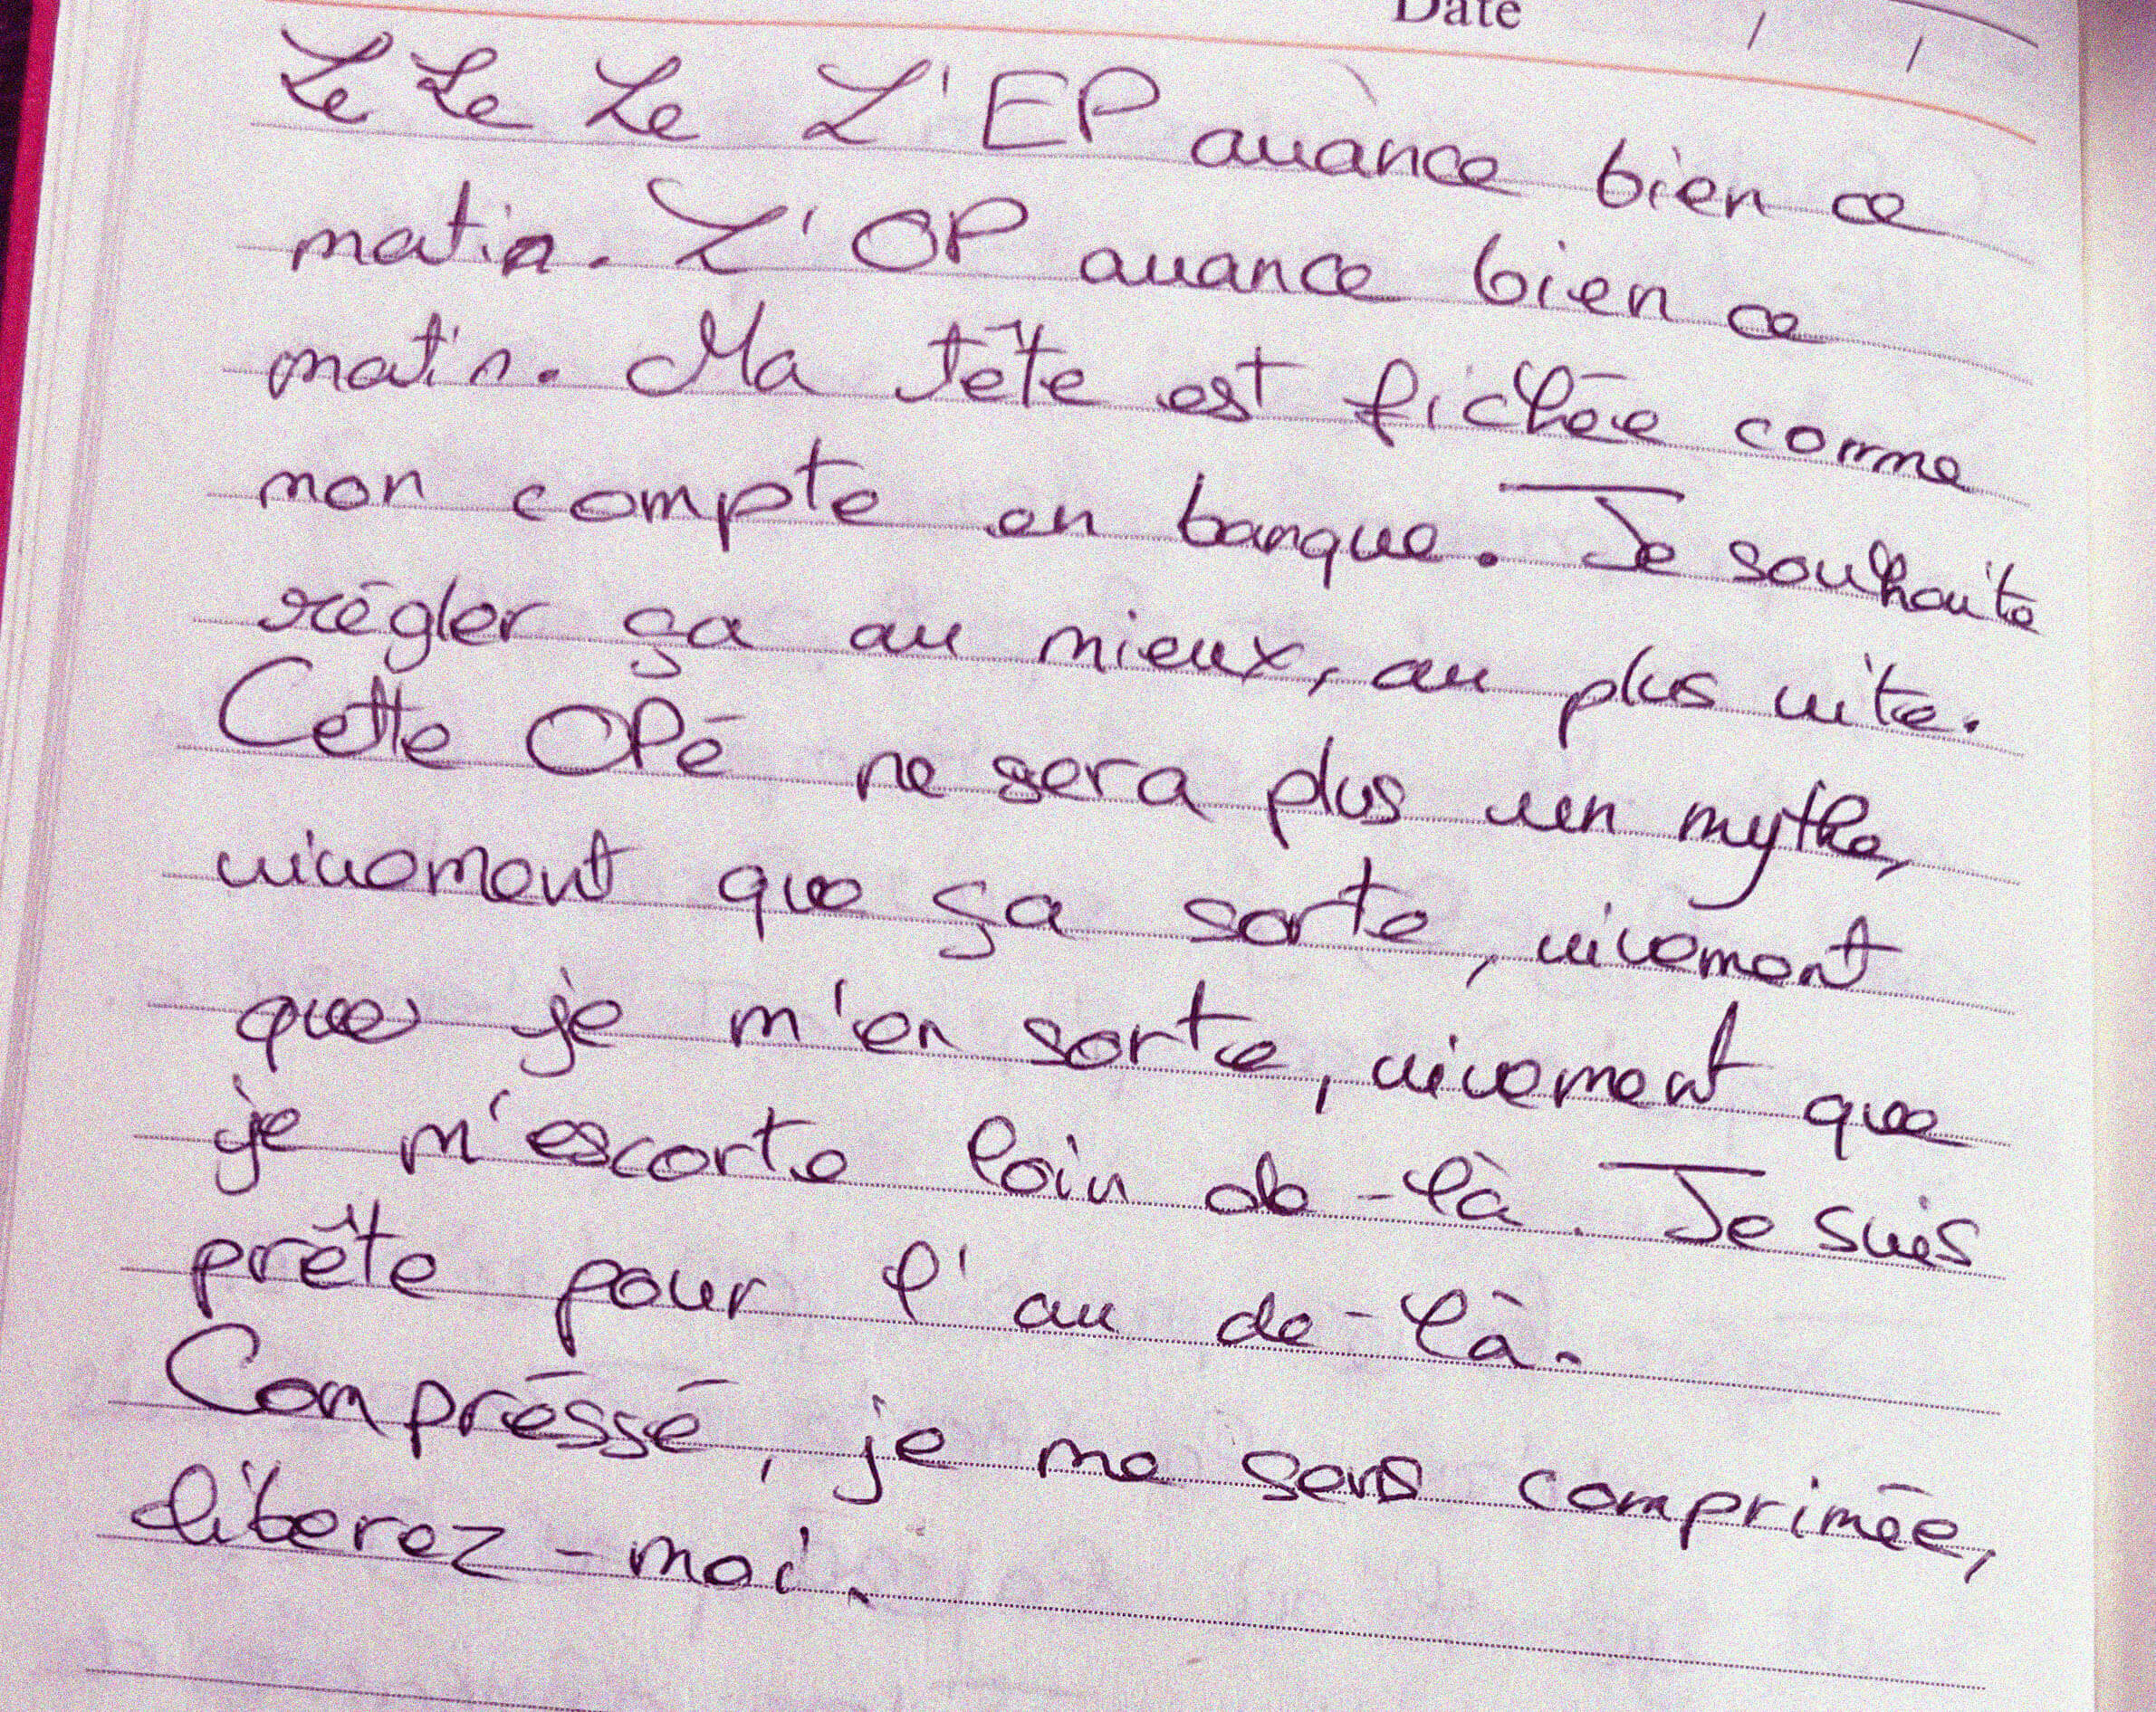 Date / /
Le Le Le L'EP avance bien ce
matin. L'OP avance bien ce
matin. Ma tête est fichée comme
mon compte en banque. Je souhaite
régler ça au mieux, au plus vite.
Cette OPé ne sera plus un mythe,
vivement que ça sorte, vivement
que je m'en sorte, vivement que
je m'escorte loin de-là. Je suis
prête pour l'au de-là.
Compréssé, je me sens comprimée,
liberez-moi.